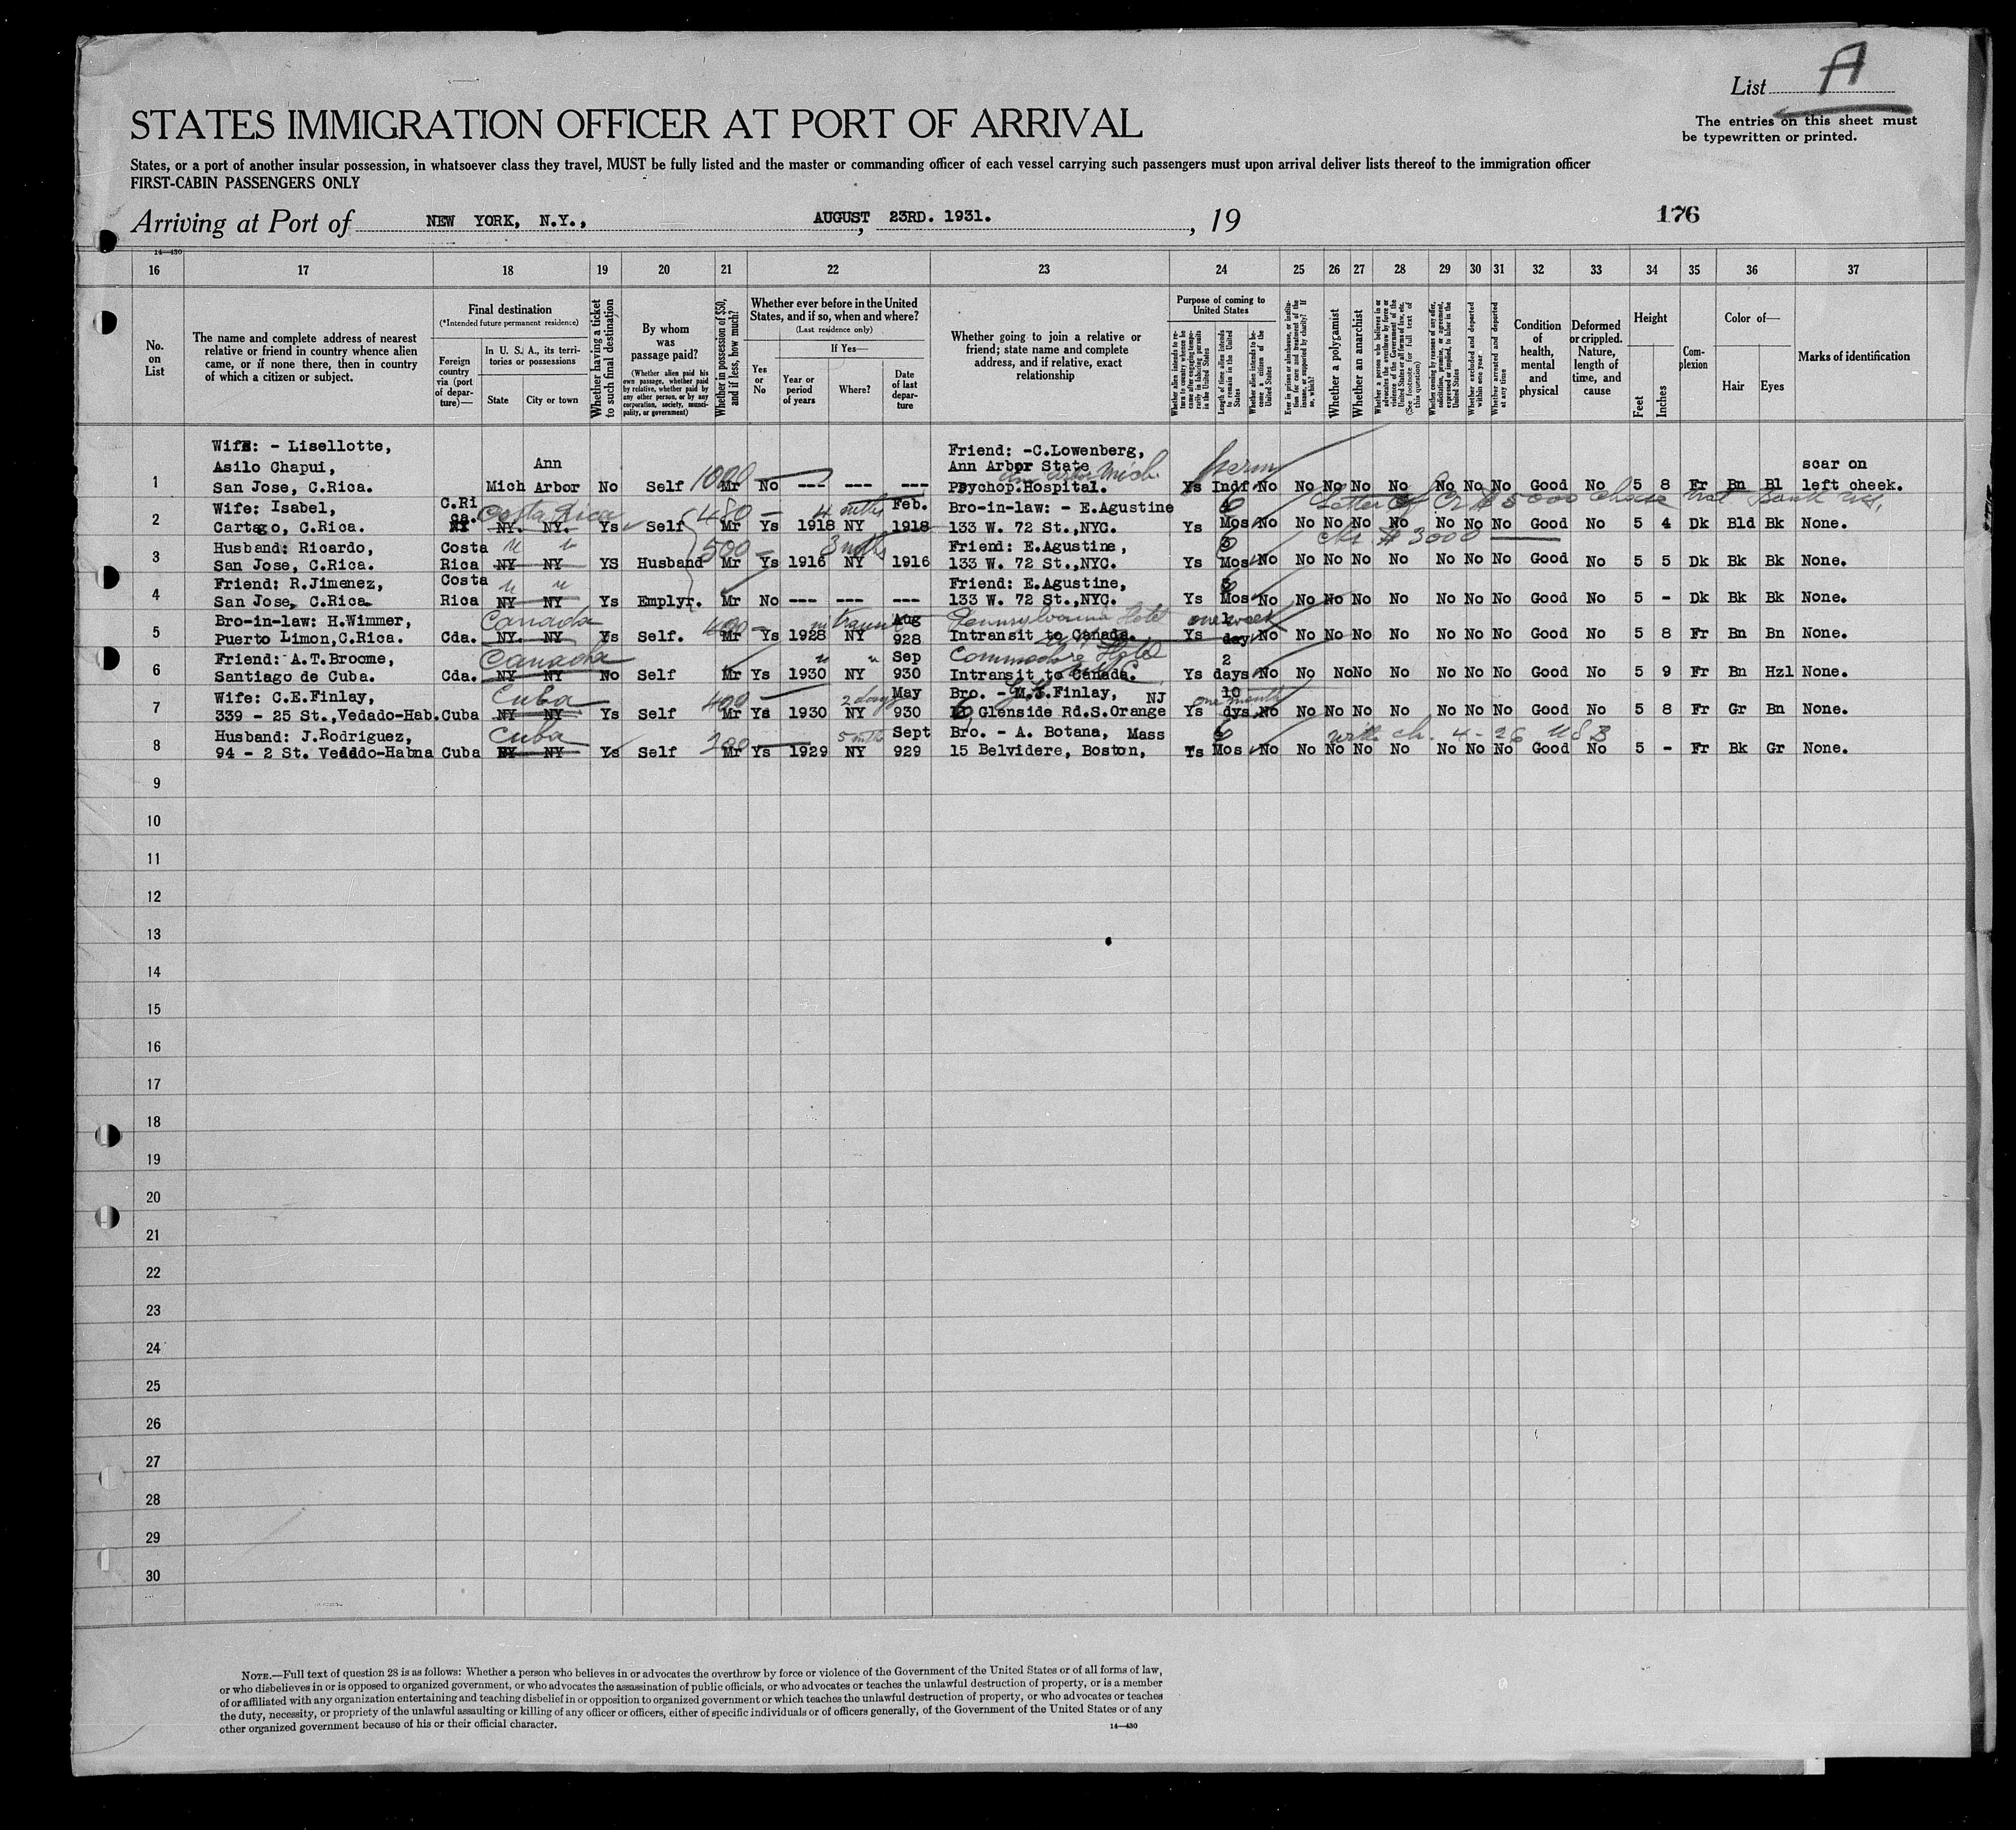 List A
STATES IMMIGRATION OFFICER AT PORT OF ARRIVAL
The entries on this sheet must
be typewritten or printed.
States, or a port of another insular possession, in whatsoever class they travel, MUST be fully listed and the master or commanding officer of each vessel carrying such passengers must upon arrival deliver lists thereof to the immigration officer
FIRST-CABIN PASSENGERS ONLY
Arriving at Port of NEW YORK, N.Y., AUGUST 23RD. 1931. , 19
176
14—430
16 17 18 19 20 21 22 23 24 25 26 27 28 29 30 31 32 33 34 35 36 37
No. on List
The name and complete address of nearest relative or friend in country whence alien came, or if none there, then in country of which a citizen or subject.
Final destination
(*Intended future permanent residence)
Foreign country via (port of departure)—
In U. S. A., its territories or possessions
State
City or town
Whether having a ticket to such final destination
By whom was passage paid?
(Whether alien paid his own passage, whether paid by relative, whether paid by any other person, or by any corporation, society, municipality, or government)
Whether in possession of $50, and if less, how much?
Whether ever before in the United States, and if so, when and where?
(Last residence only)
If Yes—
Yes or No
Year or period of years
Where?
Date of last departure
Whether going to join a relative or friend; state name and complete address, and if relative, exact relationship
Purpose of coming to United States
Whether alien intends to return to country whence he came after engaging temporarily in laboring pursuits in the United States
Length of time alien intends to remain in the United States
Whether alien intends to become a citizen of the United States
Ever in prison or almshouse, or institution for care and treatment of the insane, or supported by charity? If so, which?
Whether a polygamist
Whether an anarchist
Whether a person who believes in or advocates the overthrow by force or violence of the Government of the United States or all forms of law, etc. (See footnote for full text of this question)
Whether coming by reason of any offer, solicitation, promise, or agreement, expressed or implied, to labor in the United States
Whether excluded and deported within one year
Whether arrested and deported at any time
Condition of health, mental and physical
Deformed or crippled. Nature, length of time, and cause
Height
Feet
Inches
Complexion
Color of—
Hair
Eyes
Marks of identification
Wife: - Lisellotte, Friend: -C.Lowenberg,
Asilo Chapui, Ann Ann Arbor State perm scar on
1 San Jose, C.Rica. Mich Arbor No Self 1000 Mr No --- --- --- Psychop.Hospital. Ann Arbor Mich Ys Indf No No No No No No No No Good No 5 8 Fr Bn Bl left cheek.
Wife: Isabel, C.Ri ca. Costa Rica 480 4 mths Feb. Bro-in-law: - E.Agustine 6 Letter of Cr $5000 Chase Nat Bank
2 Cartago, C.Rica. NY NY. NY. Ys Self Mr Ys 1918 NY 1918 133 W. 72 St.,NYC. Ys Mos No No No No No No No No Good No 5 4 Dk Bld Bk None.
Husband: Ricardo, Costa " " 500 3 mths Friend: E.Agustine, $3000
3 San Jose, C.Rica. Rica NY NY YS Husband Mr Ys 1916 NY 1916 133 W. 72 St.,NYC. Ys Mos No No No No No No No No Good No 5 5 Dk Bk Bk None.
Friend: R.Jimenez, Costa " " Friend: E.Agustine,
4 San Jose, C.Rica. Rica NY NY Ys Emplyr. Mr No --- --- --- 133 W. 72 St.,NYC. Ys Mos No No No No No No No No Good No 5 - Dk Bk Bk None.
Bro-in-law: H.Wimmer, Canada 400 in transit Aug Pennsylvania Hotel one week
5 Puerto Limon,C.Rica. Cda. NY. NY Ys Self. Mr Ys 1928 NY 928 Intransit to Canada. Ys day No No No No No No No No Good No 5 8 Fr Bn Bn None.
Friend: A.T.Broome, Canada " " Sep Commodore Hotel 2
6 Santiago de Cuba. Cda. NY NY No Self Mr Ys 1930 NY 930 Intransit to Canada. NYC Ys days No No No No No No No No Good No 5 9 Fr Bn Hzl None.
Wife: C.E.Finlay, Cuba 400 2 days May Bro. - Finlay, NJ 10 one month
7 339 - 25 St.,Vedado-Hab. Cuba NY NY Ys Self Mr Ys 1930 NY 930 Glenside Rd.S.Orange Ys dys No No No No No No No No Good No 5 8 Fr Gr Bn None.
Husband: J.Rodriguez, Cuba 200 5 mths Sept Bro. - A. Botana, Mass 6 with ch. 4-26 USB
8 94 - 2 St. Vedado-Habna Cuba NY NY Ys Self Mr Ys 1929 NY 929 15 Belvidere, Boston, Ys Mos No No No No No No No No Good No 5 - Fr Bk Gr None.
9
10
11
12
13
14
15
16
17
18
19
20
21
22
23
24
25
26
27
28
29
30
NOTE.—Full text of question 28 is as follows: Whether a person who believes in or advocates the overthrow by force or violence of the Government of the United States or of all forms of law,
or who disbelieves in or is opposed to organized government, or who advocates the assassination of public officials, or who advocates or teaches the unlawful destruction of property, or is a member
of or affiliated with any organization entertaining and teaching disbelief in or opposition to organized government or which teaches the unlawful destruction of property, or who advocates or teaches
the duty, necessity, or propriety of the unlawful assaulting or killing of any officer or officers, either of specific individuals or of officers generally, of the Government of the United States or of any
other organized government because of his or their official character.
14—430